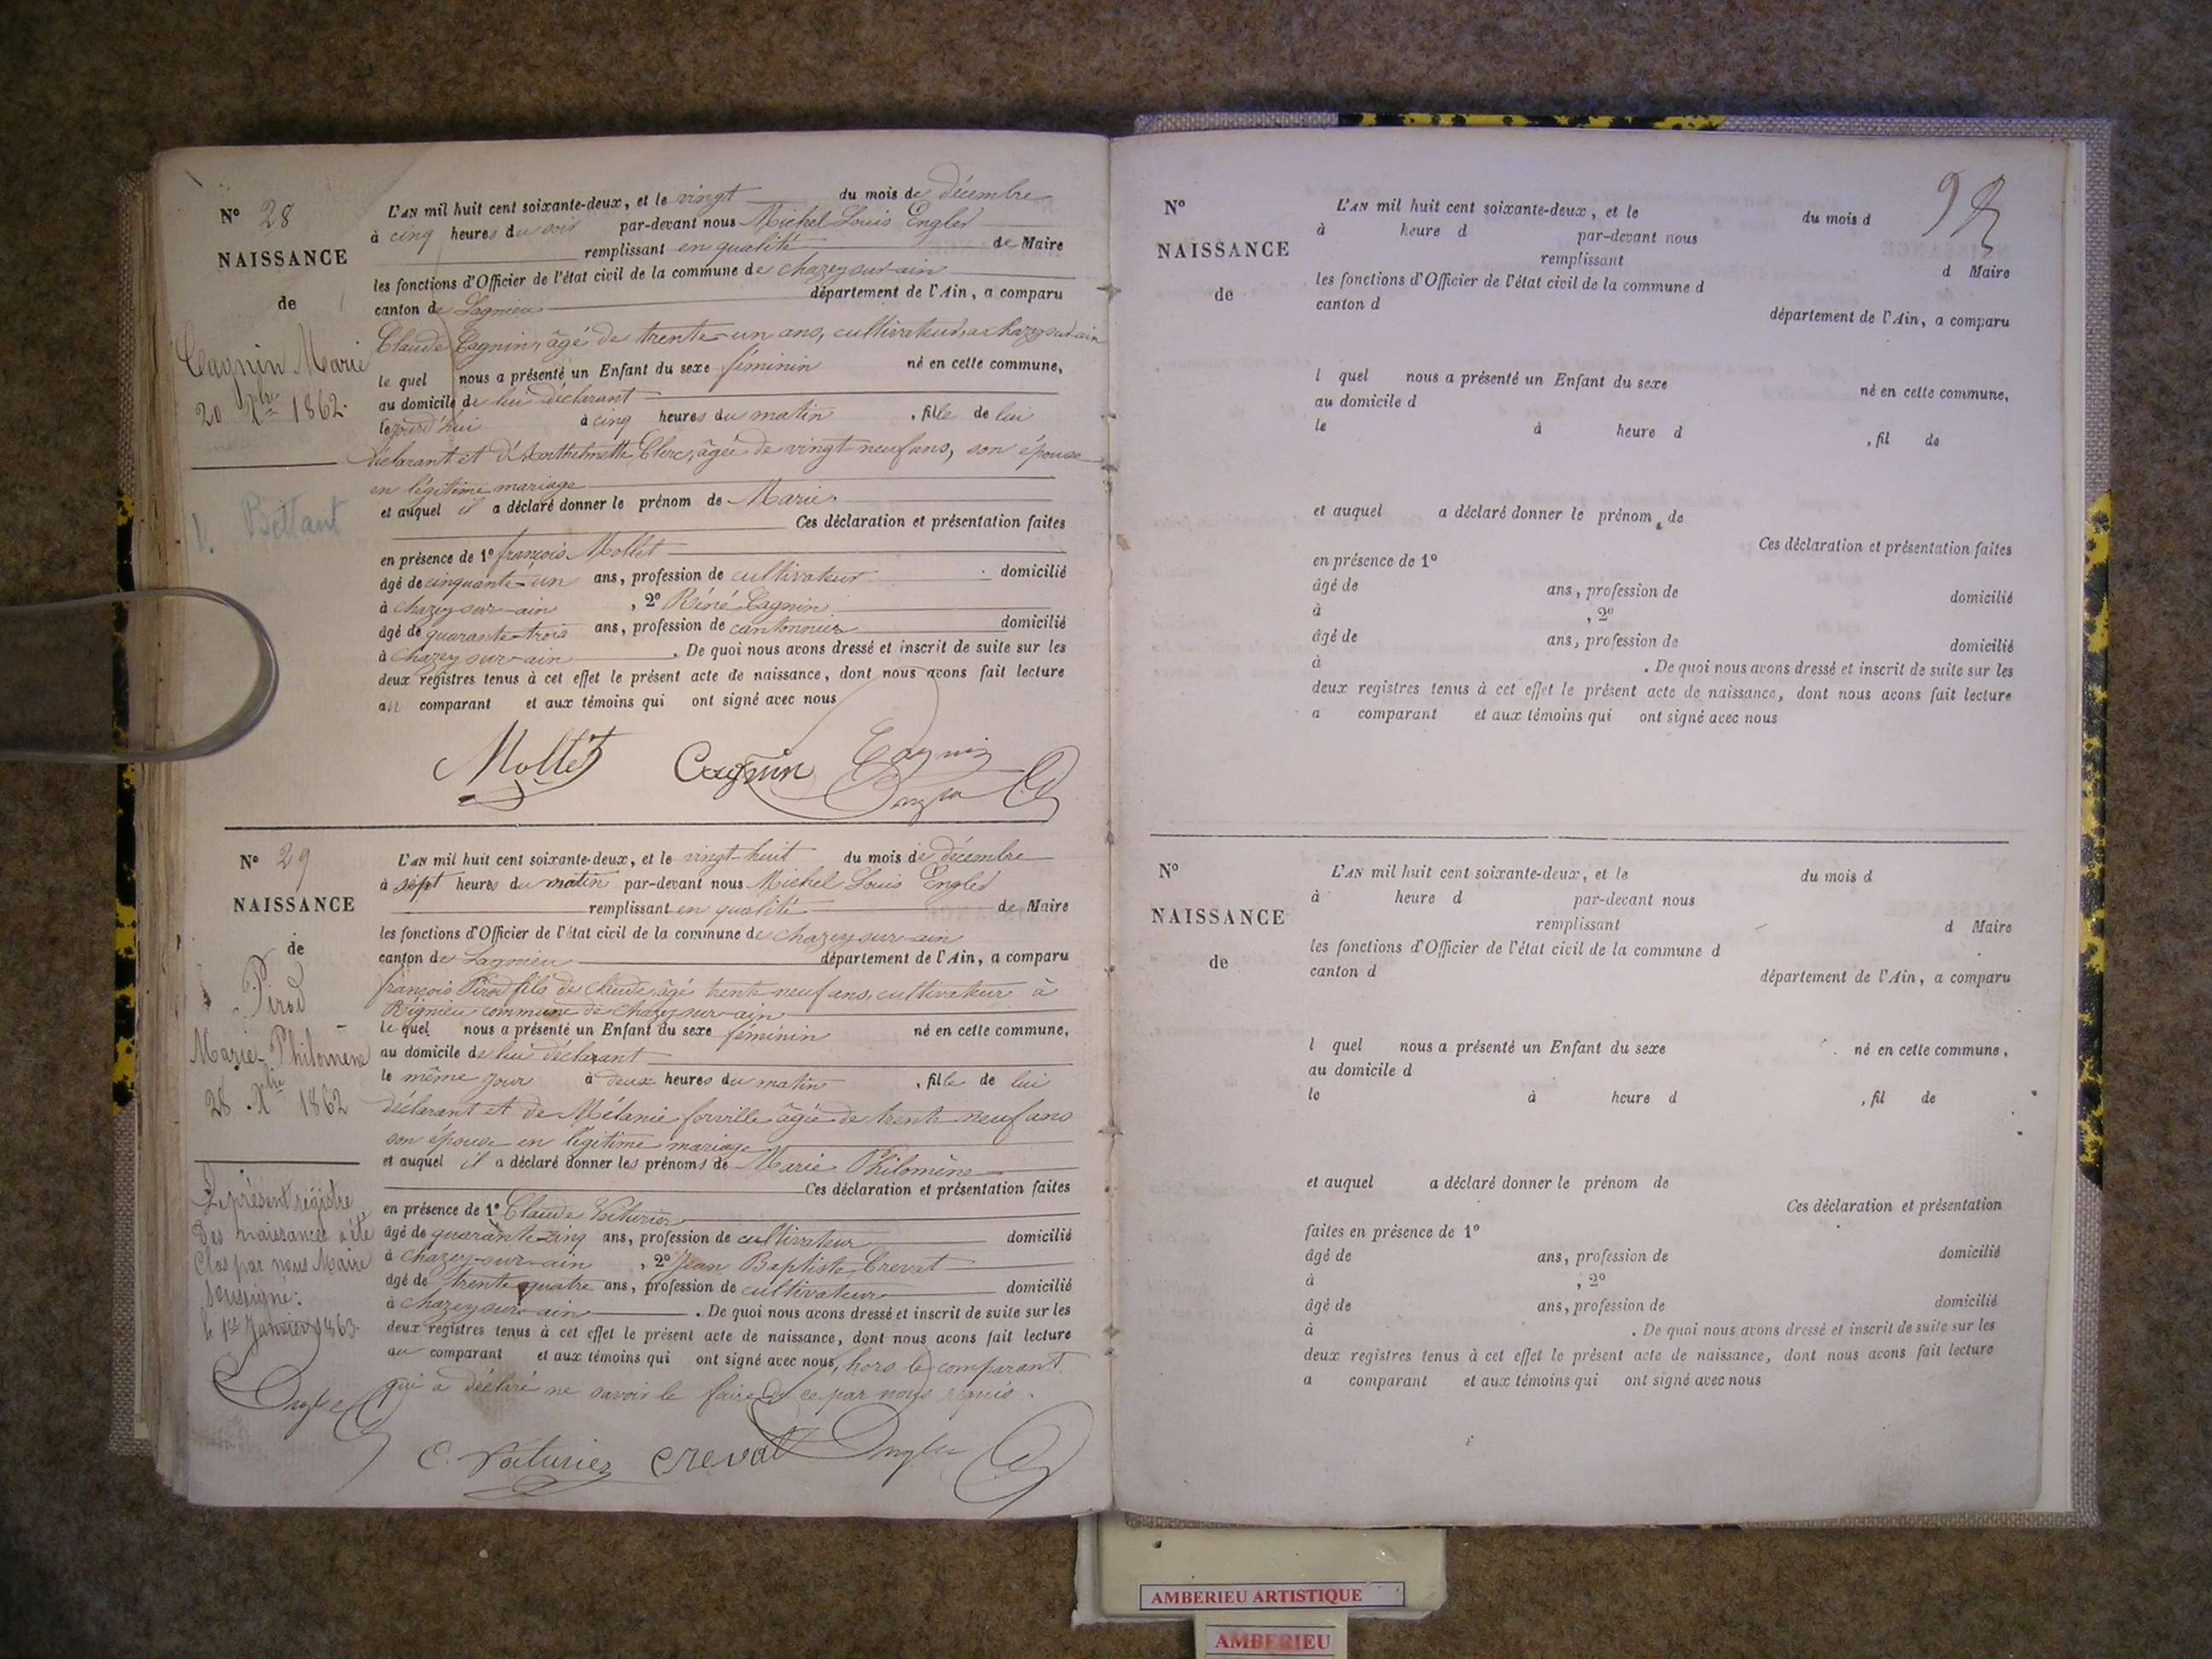 N° 28
NAISSANCE
de
Cagnin Marie
20 Xbre 1862.
V. Bettant
L'AN mil huit cent soixante-deux, et le vingt du mois de décembre
à cinq heures du soir par-devant nous Michel Louis Engler
remplissant en qualité de Maire
les fonctions d'Officier de l'état civil de la commune de chazey sur-ain
canton de Lagnieu département de l'Ain, a comparu
Claude Cagnin, âgé de trente-un ans, cultivateur, a chazey sur-ain
le quel nous a présenté un Enfant du sexe féminin né en cette commune,
au domicile de lui déclarant
le jourd'hui à cinq heures du matin , fille de lui
déclarant et d' Clerc, âgée de vingt neuf ans, son épouse
en légitime mariage
et auquel il a déclaré donner le prénom de Marie.
Ces déclaration et présentation faites
en présence de 1° françois Mollet
âgé de cinquante-un ans, profession de cultivateur domicilié
à chazey sur-ain , 2° Réné Cagnin
âgé de quarante-trois ans, profession de cantonnier domicilié
à Chazey sur-ain . De quoi nous avons dressé et inscrit de suite sur les
deux registres tenus à cet effet le présent acte de naissance, dont nous avons fait lecture
au comparant et aux témoins qui ont signé avec nous
Mollet Cagnin Cagnin
Engler
N° 29
NAISSANCE
de
Pirod
Marie-Philomène
28 Xbre 1862
Le présent régistre
des naissances a été
Clos par nous Maire
soussigné:
le 1er Janvier 1863.
Engler
L'AN mil huit cent soixante-deux, et le vingt-huit du mois de décembre
à sept heures du matin par-devant nous Michel Louis Engler
remplissant en qualité de Maire
les fonctions d'Officier de l'état civil de la commune de chazey sur-ain
canton de Lagnieu département de l'Ain, a comparu
françois Pirod fils de Claude, âgé trente-neuf ans, cultivateur à
Rignieu commune de chazey sur-ain
le quel nous a présenté un Enfant du sexe féminin né en cette commune,
au domicile de lui déclarant
le même jour à deux heures du matin , fille de lui
déclarant et de Mélanie forville âgée de trente-neuf ans
son épouse en légitime mariage
et auquel il a déclaré donner les prénoms de Marie Philomène
Ces déclaration et présentation faites
en présence de 1° Claude Voiturier
âgé de quarante-cinq ans, profession de cultivateur domicilié
à chazey-sur-ain , 2° Jean Baptiste Crevat
âgé de trente quatre ans, profession de cultivateur domicilié
à Chazey sur-ain . De quoi nous avons dressé et inscrit de suite sur les
deux registres tenus à cet effet le présent acte de naissance, dont nous avons fait lecture
au comparant et aux témoins qui ont signé avec nous, hors le comparant
qui a déclaré ne savoir le faire de ce par nous requis.
C. Voiturier Crevat Engler
N°
NAISSANCE
de
L'AN mil huit cent soixante-deux, et le du mois d
à heure d par-devant nous
remplissant d Maire
les fonctions d'Officier de l'état civil de la commune d
canton d département de l'Ain, a comparu
l quel nous a présenté un Enfant du sexe né en cette commune,
au domicile d
le à heure d , fil de
et auquel a déclaré donner le prénom de
Ces déclaration et présentation faites
en présence de 1°
âgé de ans, profession de domicilié
à , 2°
âgé de ans, profession de domicilié
à . De quoi nous avons dressé et inscrit de suite sur les
deux registres tenus à cet effet le présent acte de naissance, dont nous avons fait lecture
a comparant et aux témoins qui ont signé avec nous
N°
NAISSANCE
de
L'AN mil huit cent soixante-deux, et le du mois d
à heure d par-devant nous
remplissant d Maire
les fonctions d'Officier de l'état civil de la commune d
canton d département de l'Ain, a comparu
l quel nous a présenté un Enfant du sexe né en cette commune,
au domicile d
le à heure d , fil de
et auquel a déclaré donner le prénom de
Ces déclaration et présentation
faites en présence de 1°
âgé de ans, profession de domicilié
à , 2°
âgé de ans, profession de domicilié
à . De quoi nous avons dressé et inscrit de suite sur les
deux registres tenus à cet effet le présent acte de naissance, dont nous avons fait lecture
a comparant et aux témoins qui ont signé avec nous
AMBERIEU ARTISTIQUE
AMBERIEU